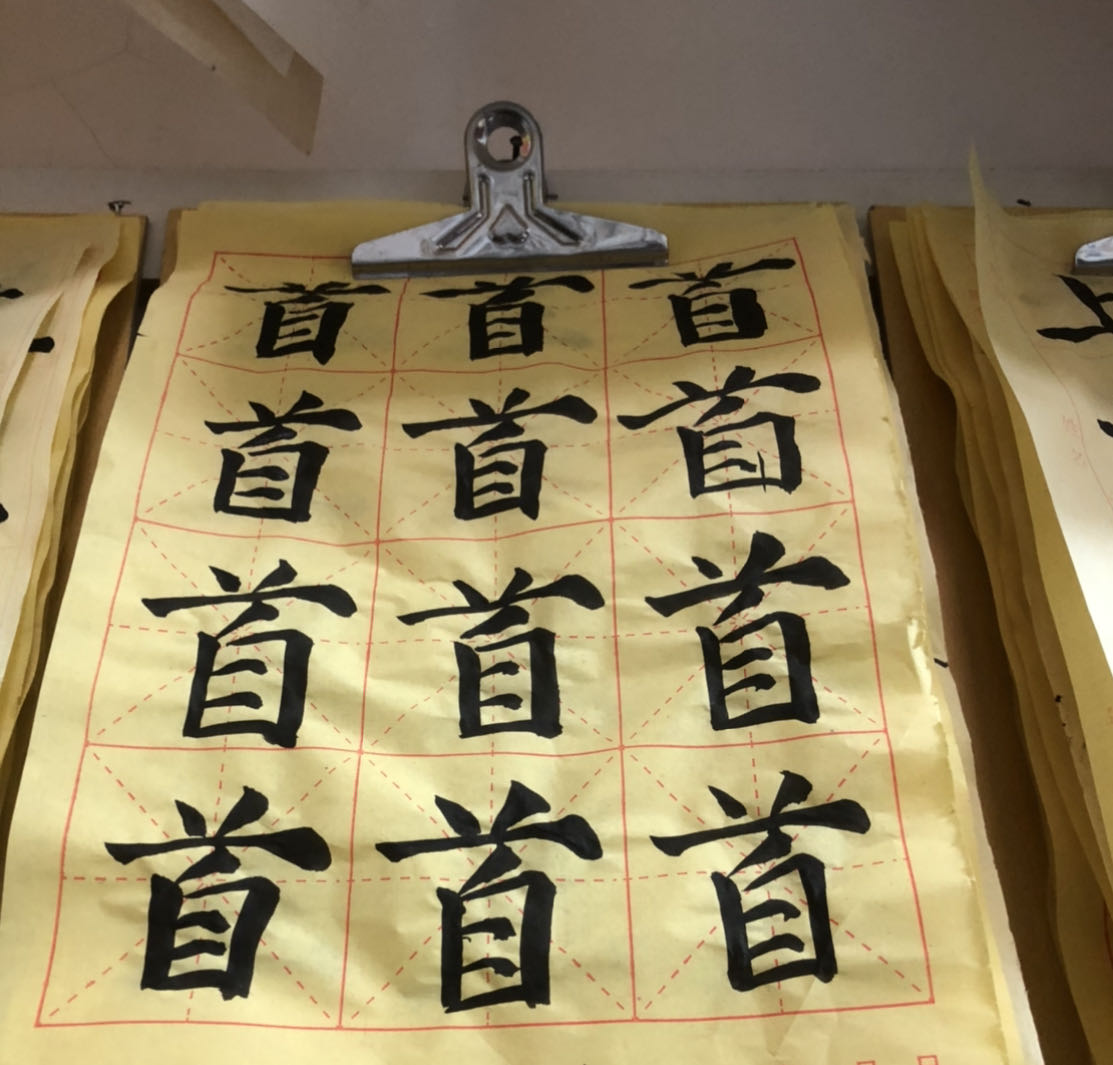 首首首
首首首
首首首
首首首